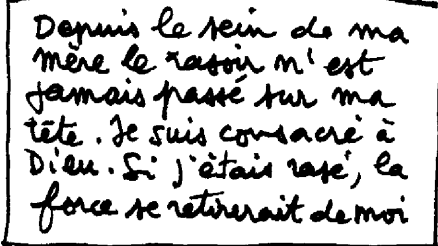 Depuis le sein de ma
mère le rasoir n'est
jamais passé sur ma
tête. Je suis consacré à
Dieu. Si j'étais rasé, la
force se retirerait de moi